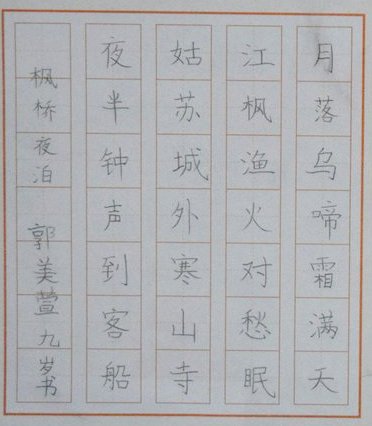 月落乌啼霜满天
江枫渔火对愁眠
姑苏城外寒山寺
夜半钟声到客船
枫桥夜泊 郭美萱九岁书